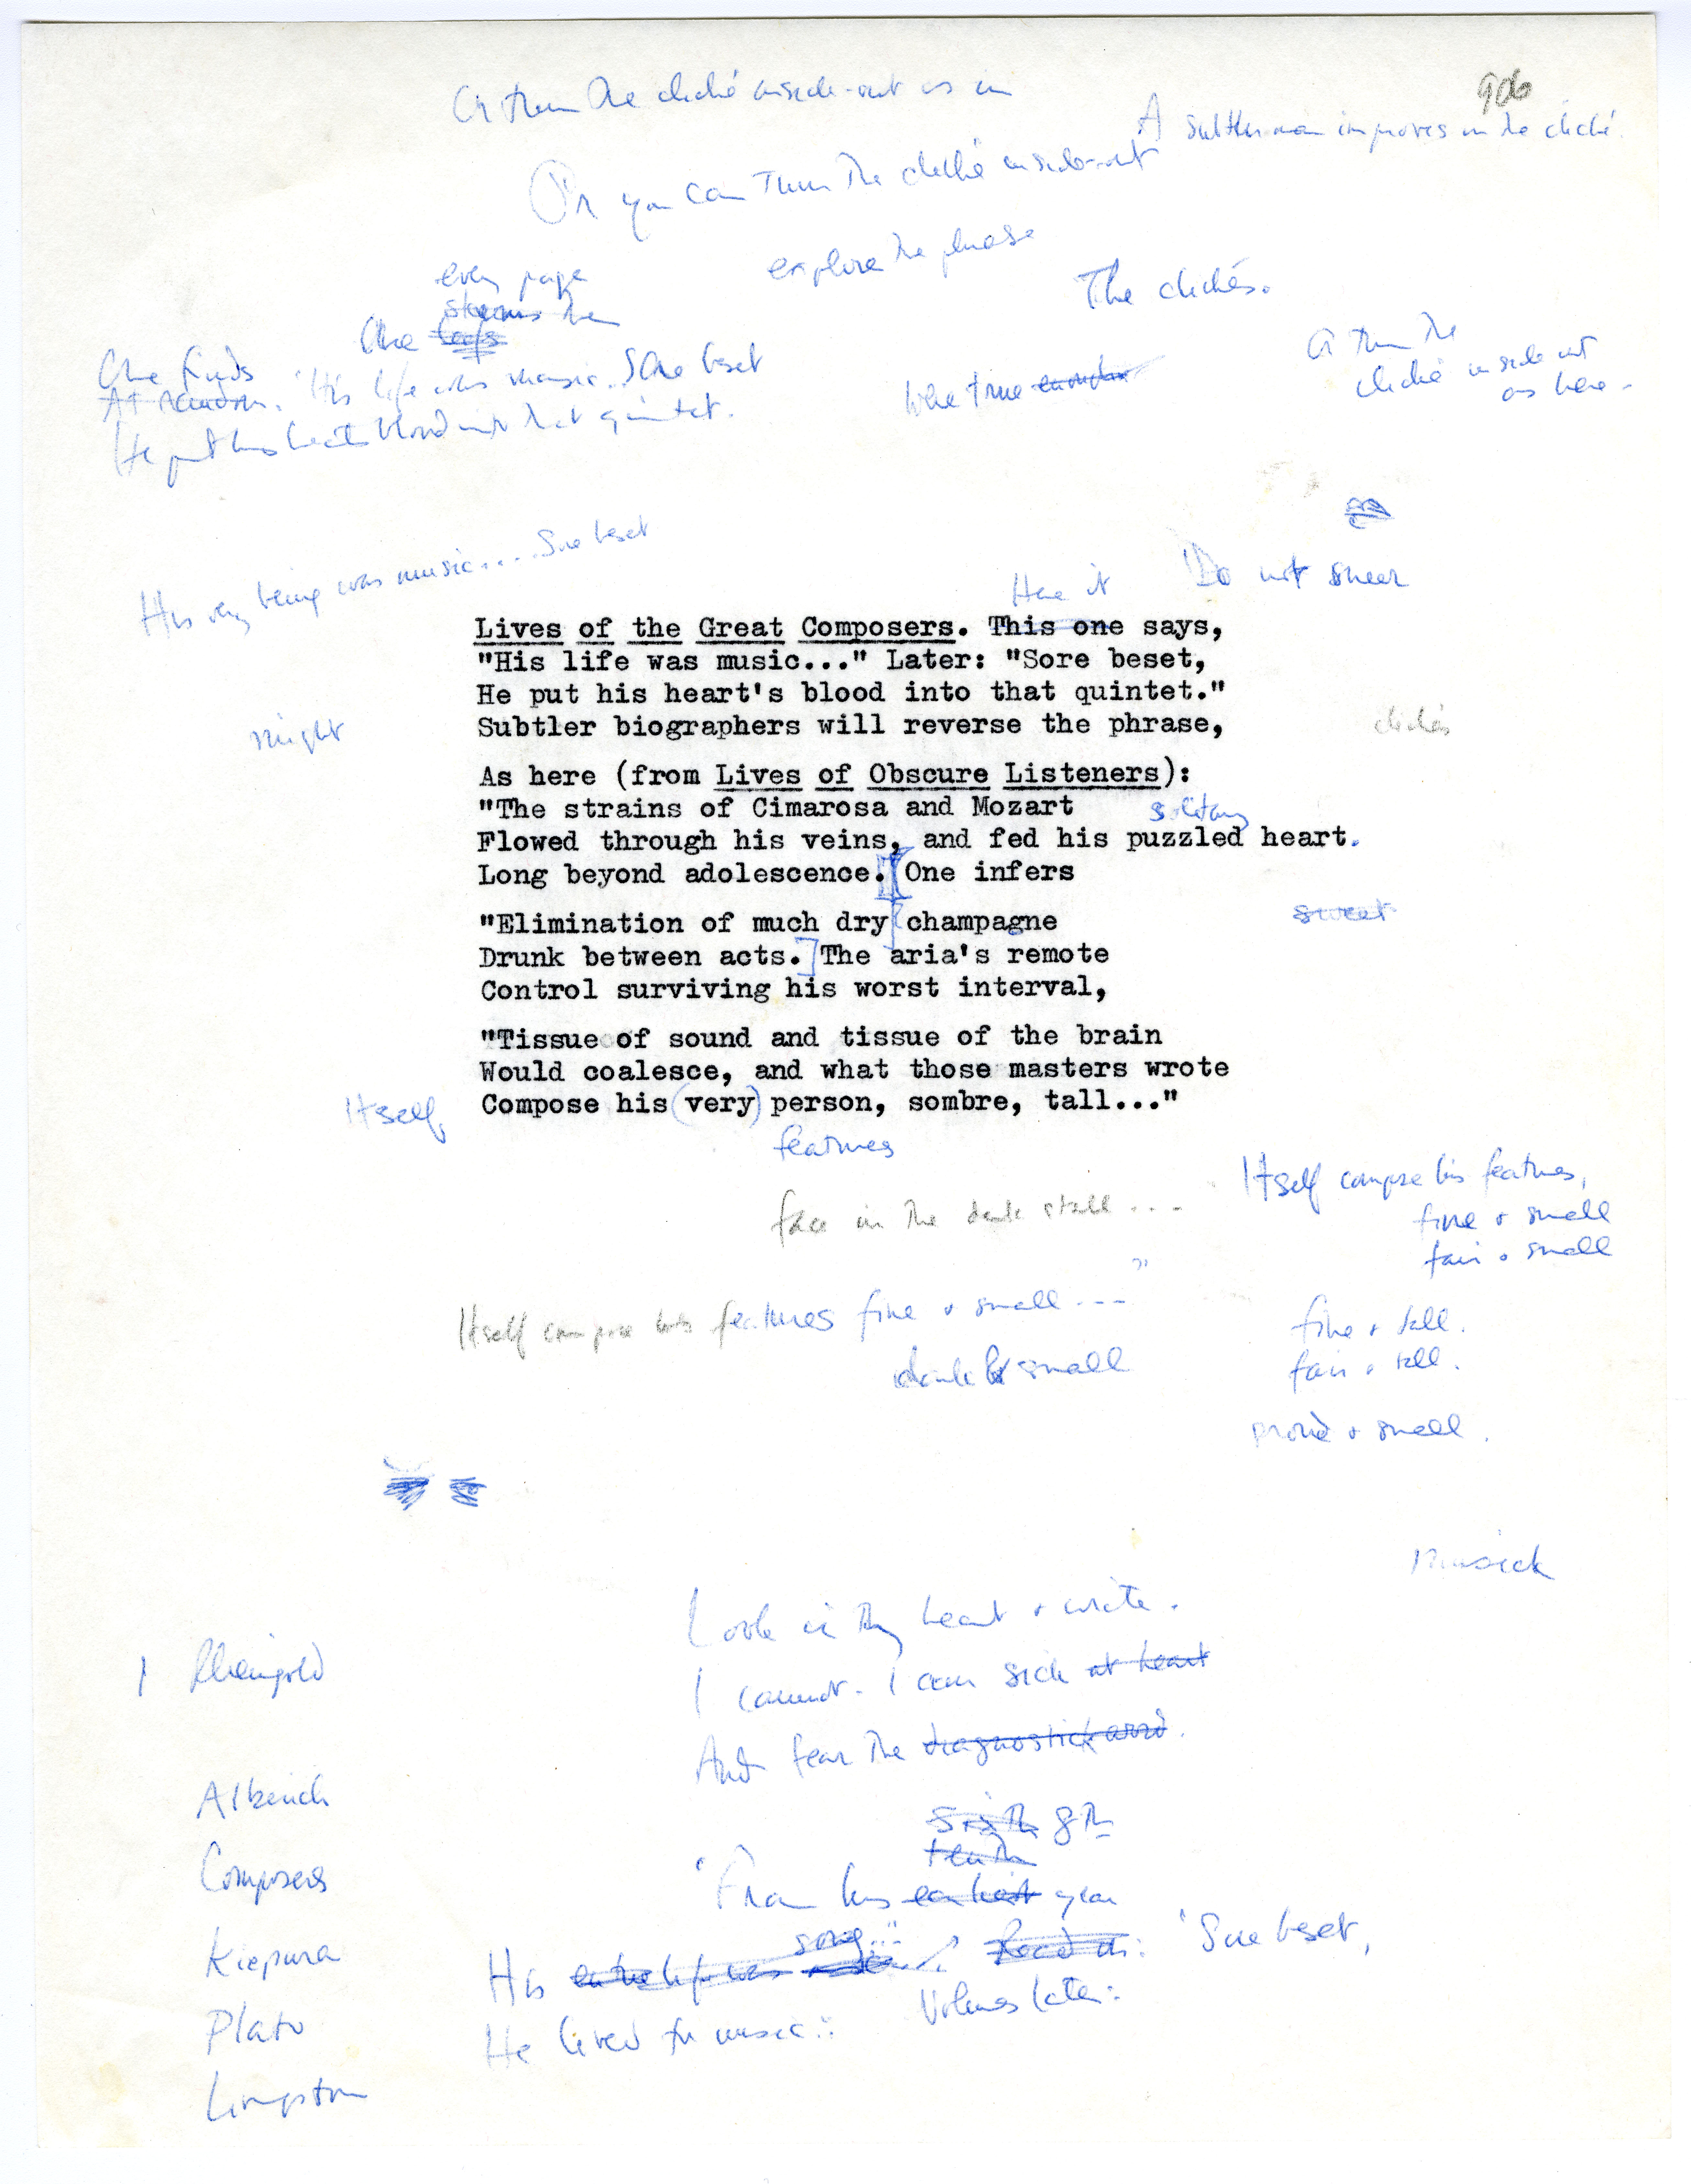 906
Or turn the cliché inside-out as in
A subtler man improves on the cliché.
Or you can turn the cliché inside-out
explore the phrase
every page
The clichés.
stems
One
Or turn the
cliché inside out
as here.
One finds
At random. "His life was music... Sore beset
were true
He put his heart's blood into that quintet.
His very being was music.... Sore beset
Do not sneer
Here it
Lives of the Great Composers. This one says,
"His life was music..." Later: "Sore beset,
He put his heart's blood into that quintet."
might
Subtler biographers will reverse the phrase,
clichés
As here (from Lives of Obscure Listeners):
"The strains of Cimarosa and Mozart
solitary
Flowed through his veins, and fed his puzzled heart.
Long beyond adolescence. [One infers
sweet
"Elimination of much dry champagne
Drunk between acts.] The aria's remote
Control surviving his worst interval,
"Tissue of sound and tissue of the brain
Would coalesce, and what those masters wrote
Itself
Compose his (very) person, sombre, tall..."
features
Itself compose his features,
face in the dark stall ...
fine + small
fair + small
Itself compose his features fine + small ..."
fine + tall.
dark & small
fair + tall.
proud + small.
musick
Look in thy heart + write.
I Rheingold
I cannot. I am sick at heart
And fear the diagnostick word.
Alberich
sixth 8th
tenth
Composers
"From his earliest year
Kiepura
song...
His entire life was Read on: "Sore beset,
Volumes later:
Plato
He lived for music...
Livingston